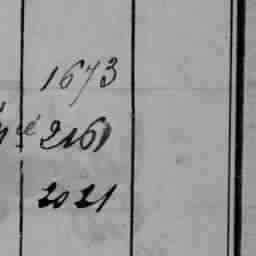 1673
2161
2021